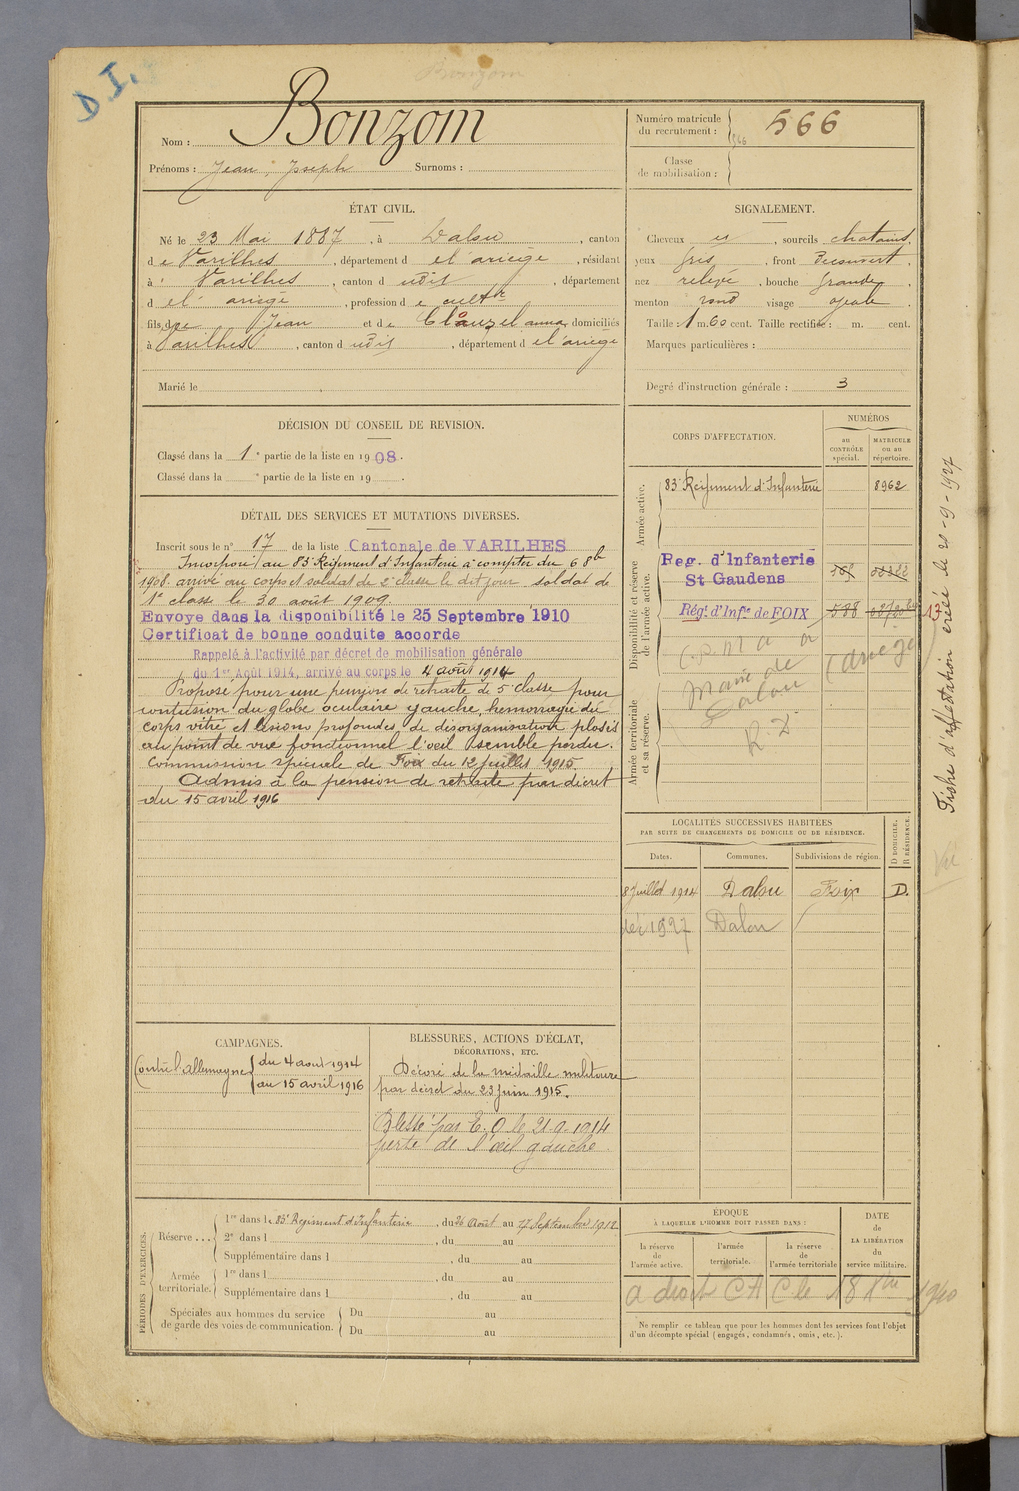 D I.
Bonzom
Nom : Bonzom
Prénoms : Jean, Joseph Surnoms :
Numéro matricule
du recrutement : 566
Classe
de mobilisation :
ÉTAT CIVIL.
Né le 23 Mai 1887, à Dalou, canton
de Varilhes, département d e l'ariège, résidant
à Varilhes, canton d udit, département
d e l' ariège, profession d e cultr
fils de Jean et de Clauzel anna domiciliés
à Varilhes, canton d udit, département d e l'ariège
Marié le
SIGNALEMENT.
Cheveux et, sourcils chatains,
yeux gris, front Découvert,
nez relevé, bouche grande,
menton rond visage ovale
Taille : 1 m. 60 cent. Taille rectifiée : m. cent.
Marques particulières :
Degré d'instruction générale : 3
DÉCISION DU CONSEIL DE REVISION.
Classé dans la 1e partie de la liste en 1908.
Classé dans la e partie de la liste en 19 .
DÉTAIL DES SERVICES ET MUTATIONS DIVERSES.
Inscrit sous le n° 17 de la liste Cantonale de VARILHES
Incorporé au 83e Régiment d'Infanterie à compter du 6 8b
1908. arrivé au corps et soldat de 2e classe le dit jour soldat de
1e classe le 30 août 1909.
Envoye dans la disponibilité le 25 Septembre 1910
Certificat de bonne conduite accorde
Rappelé à l'activité par décret de mobilisation générale
du 1er Août 1914, arrivé au corps le 4 août 1914
Proposé pour une pension de retraite de 5e classe pour
contusion du globe oculaire gauche, hemorragie du
corps vitré et lésions profondes de désorganisation
au point de vue fonctionnel l'oeil semble perdu.
Commission spéciale de Foix du 12 juillet 1915.
Admis à la pension de retraite par décret
du 15 avril 1916
CORPS D'AFFECTATION.
NUMÉROS
au
CONTRÔLE
spécial.
MATRICULE
ou au
répertoire.
Armée active.
83e Régiment d'Infanterie 8962
Disponibilité et réserve
de l'armée active.
Reg. d'Infanterie
St Gaudens
Régt d'Infie de FOIX 588
Mairie de
Dalou (Ariège)
R. D.
Armée territoriale
et sa réserve.
Fiche d'affectation créée le 20-9-1927
LOCALITÉS SUCCESSIVES HABITÉES
PAR SUITE DE CHANGEMENTS DE DOMICILE OU DE RÉSIDENCE.
Dates. Communes. Subdivisions de région. D DOMICILE. R RÉSIDENCE.
8 Juillet 1914 Dalou Foix D.
1927 Dalou
CAMPAGNES.
Contre l'allemagne du 4 aout 1914
au 15 avril 1916
BLESSURES, ACTIONS D'ÉCLAT,
DÉCORATIONS, ETC.
Décoré de la médaille militaire
par décret du 23 juin 1915.
Blessé par E. O le 21-9-1914
perte de l'œil gauche
PÉRIODES D'EXERCICES.
Réserve ....
1re dans l e 83e Régiment d'Infanterie, du 26 Août au 17 Septembre 1912
2e dans l , du au
Supplémentaire dans l , du au
Armée
territoriale.
1re dans l , du au
Supplémentaire dans l , du au
Spéciales aux hommes du service
de garde des voies de communication.
Du au
Du au
ÉPOQUE
À LAQUELLE L'HOMME DOIT PASSER DANS :
la réserve
de
l'armée active.
l'armée
territoriale.
la réserve
de
l'armée territoriale
DATE
de
LA LIBÉRATION
du
service militaire.
a droit CA C le 18 Xbre 1940
Ne remplir ce tableau que pour les hommes dont les services font l'objet
d'un décompte spécial (engagés, condamnés, omis, etc.).